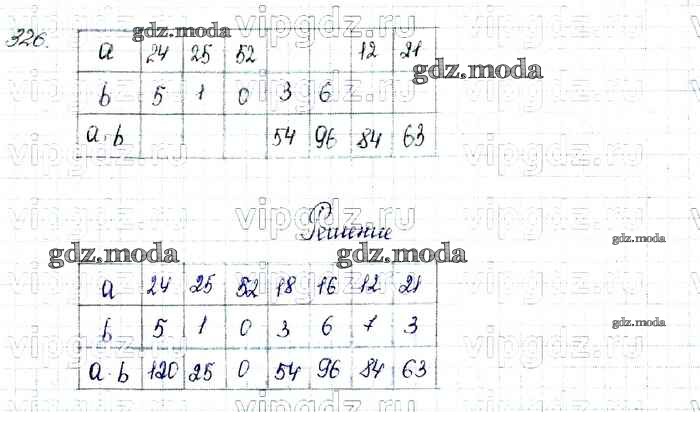 326.
a 24 25 52 12 21
b 5 1 0 3 6
a·b 54 96 84 63
Решение
a 24 25 52 18 16 12 21
b 5 1 0 3 6 7 3
a·b 120 25 0 54 96 84 63
gdz.moda
gdz.moda
gdz.moda
gdz.moda
gdz.moda
gdz.moda
vipgdz.ru
vipgdz.ru
vipgdz.ru
vipgdz.ru
vipgdz.ru
vipgdz.ru